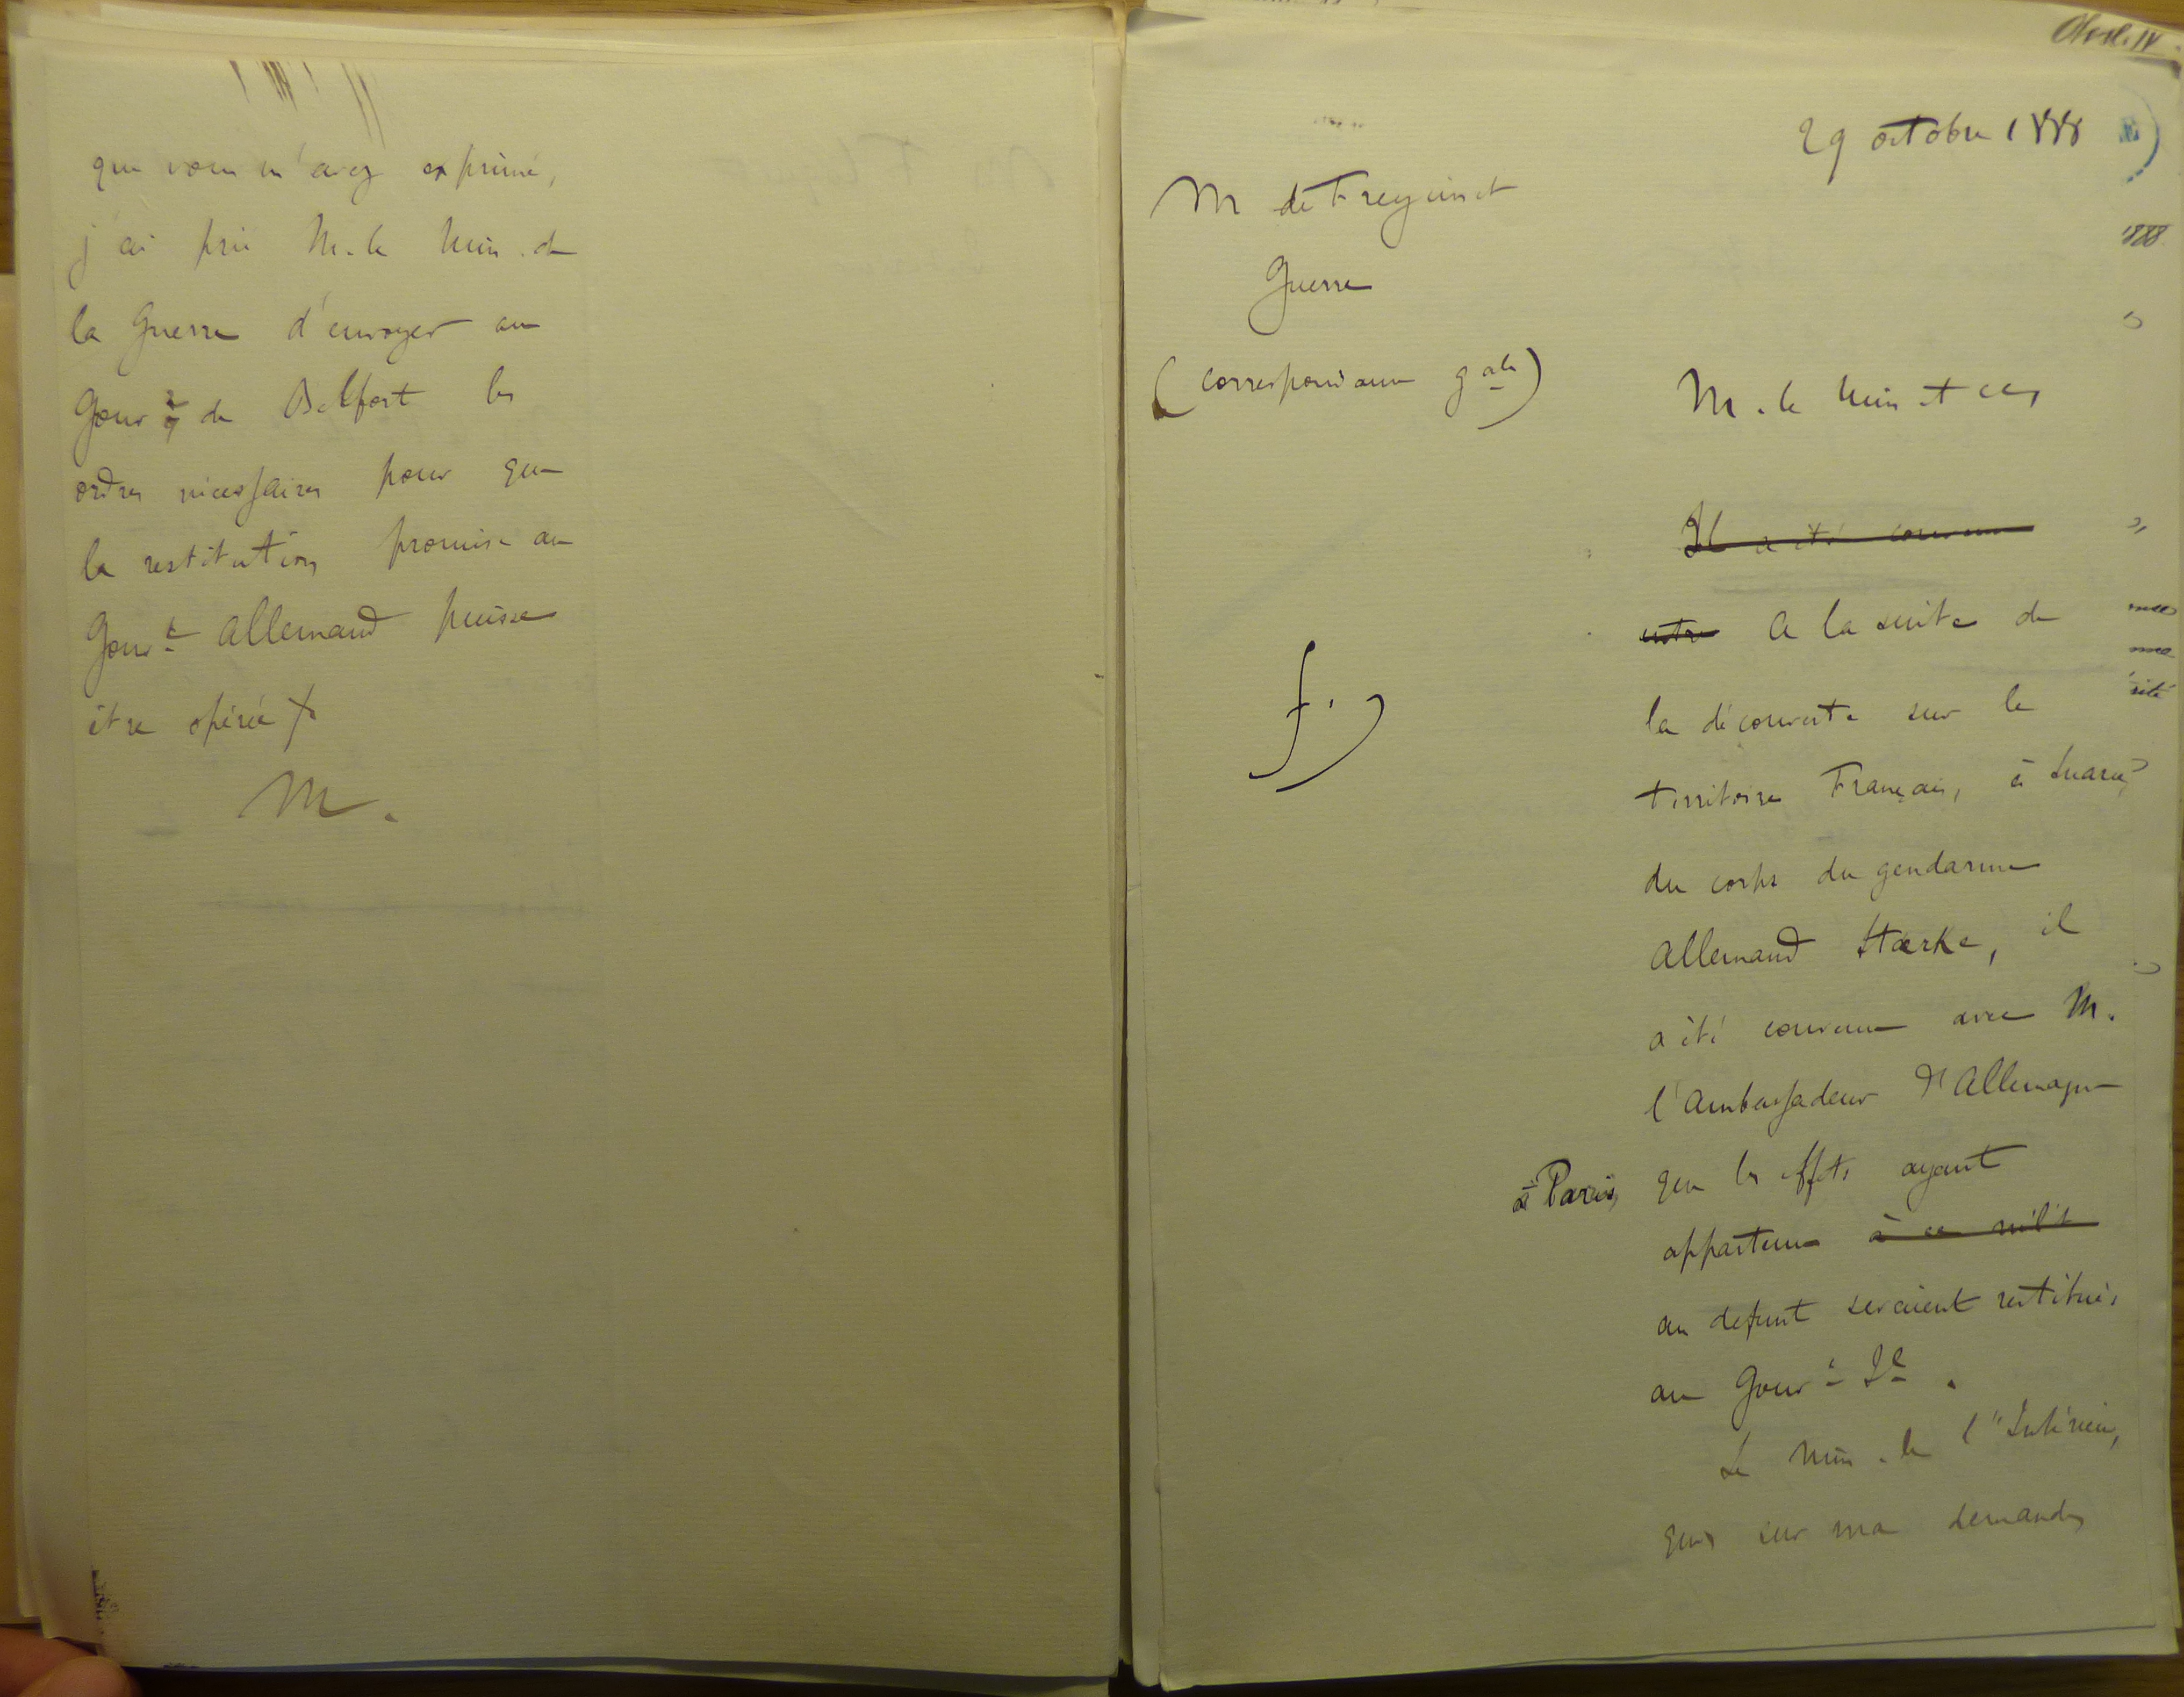 que vous m'avez exprimé,
j'ai prié M. le Min. de
la Guerre d'envoyer au
Gouvr de Belfort les
ordres nécessaires pour que
la restitution promise au
Gouvt Allemand puisse
être opérée
M.
29 octobre 1888
M de Freycinet
Guerre
(correspondance gale)
M. le Min et ce,
Il a été convenu
entre A la suite de
la découverte sur le
territoire Français, à Suarce,
du corps du gendarme
Allemand Stærke, il
a été convenu avec M.
l'Ambassadeur d'Allemagne
à Paris, que les effets ayant
appartenu à ce milit
au defunt seraient restitués
au Gouvt Il.
Le Min. de l'Intérieur,
qui, sur ma demande,
1888